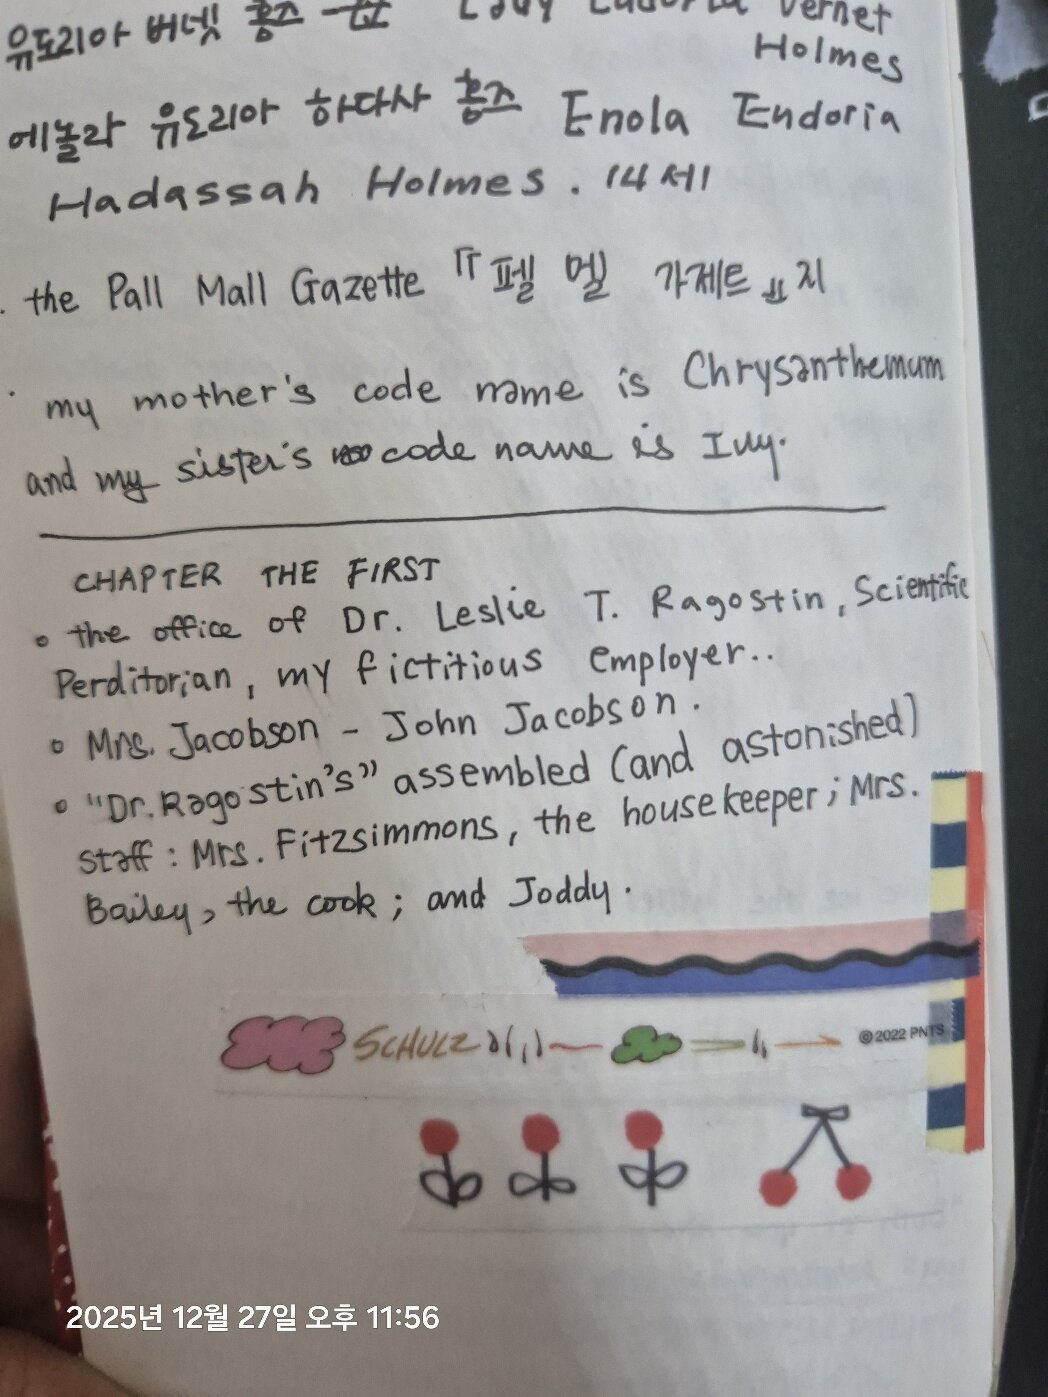 유도리아 버넷 홈즈 Lady Eudoria Vernet
Holmes
에놀라 유도리아 하다사 홈즈 Enola Eudoria
Hadassah Holmes. 14세
· the Pall Mall Gazette 『펠 멜 가제트』지
· my mother's code name is Chrysanthemum
and my sister's code name is Ivy.
CHAPTER THE FIRST
• the office of Dr. Leslie T. Ragostin, Scientific
Perditorian, my fictitious employer..
• Mrs. Jacobson - John Jacobson.
• "Dr. Ragostin's" assembled (and astonished)
staff : Mrs. Fitzsimmons, the housekeeper; Mrs.
Bailey, the cook; and Joddy.
SCHULZ
©2022 PNTS
2025년 12월 27일 오후 11:56